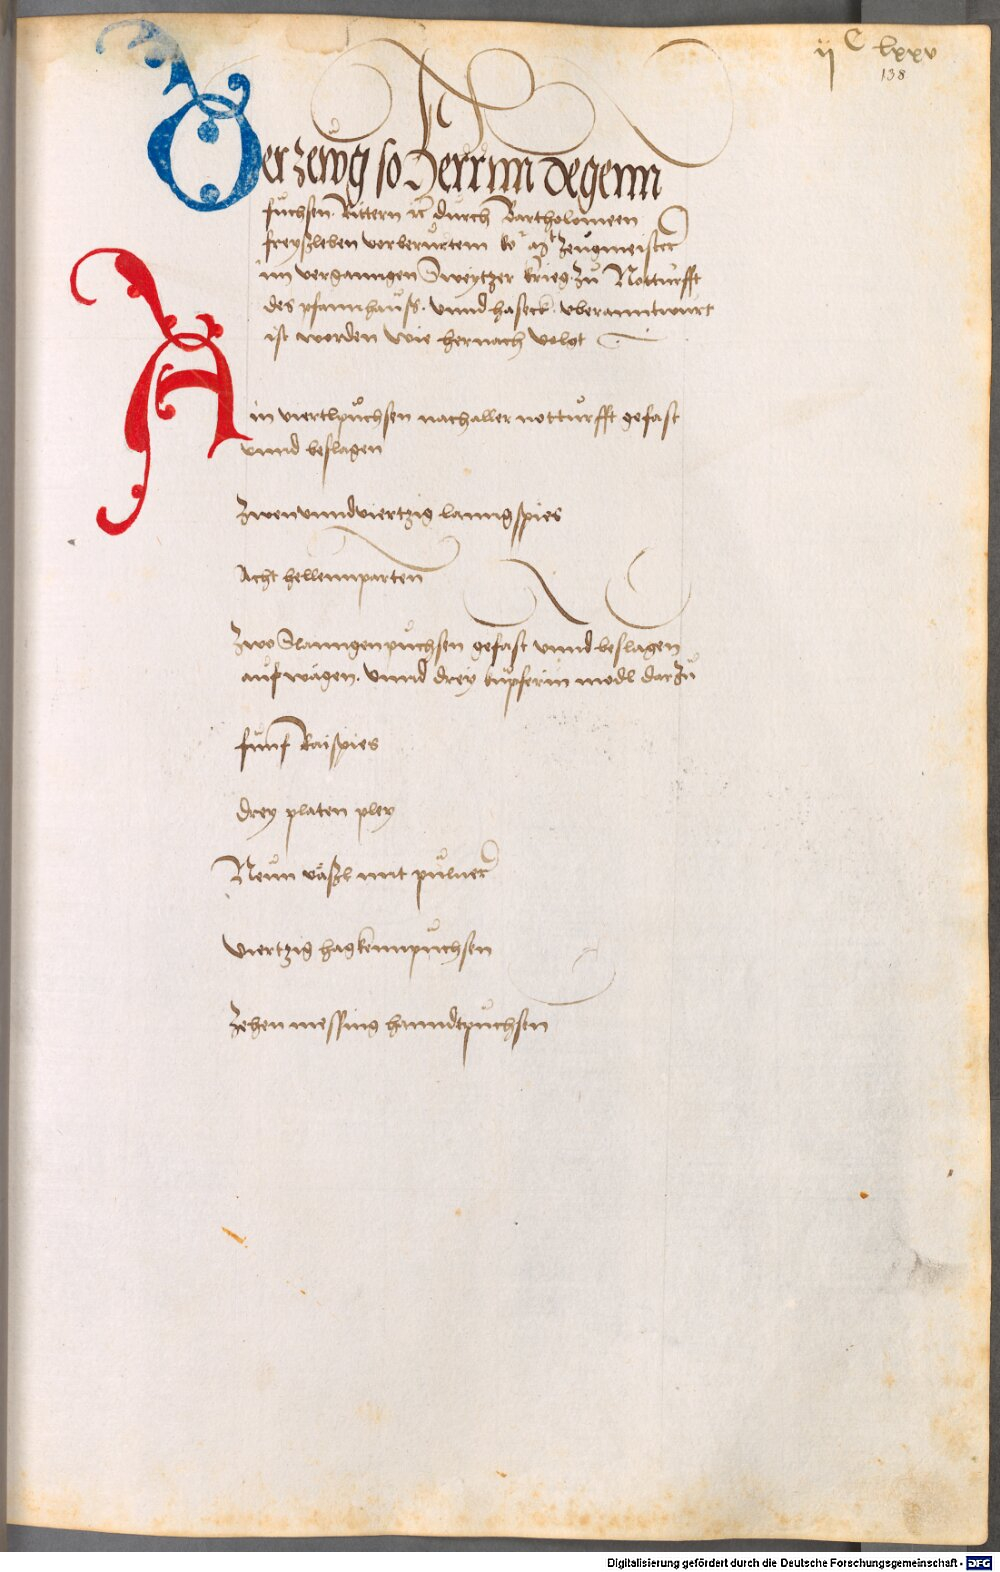 ij C lxxv
138
Der zewg so Herrnn degenn
fuchsen. Rittern rc durch Bartholomeen
freyßleben vorberurtem ko. Mt Zeugmeister
im vergangngen Sweytzer krieg. zu Notturfft
des pfannhauß. vnnd haseck. vberanntwurt
ist worden wie hernach volgt
Ain viertlpuchsen nach aller notturfft gefast
vnnd beslagen
Zwenvnndviertzig lanngspies
Acht hellennparten
Zwo Slanngenpuchsen gefast vnnd beslagen
auf wägen. vnnd drey kupferin modl darzu
funf Raißpies
drey platen pley
Neun väßl mit puluer
Viertzig hagkennpuchsen
Zehen messing hanndtpuchsen
Digitalisierung gefördert durch die Deutsche Forschungsgemeinschaft - DFG